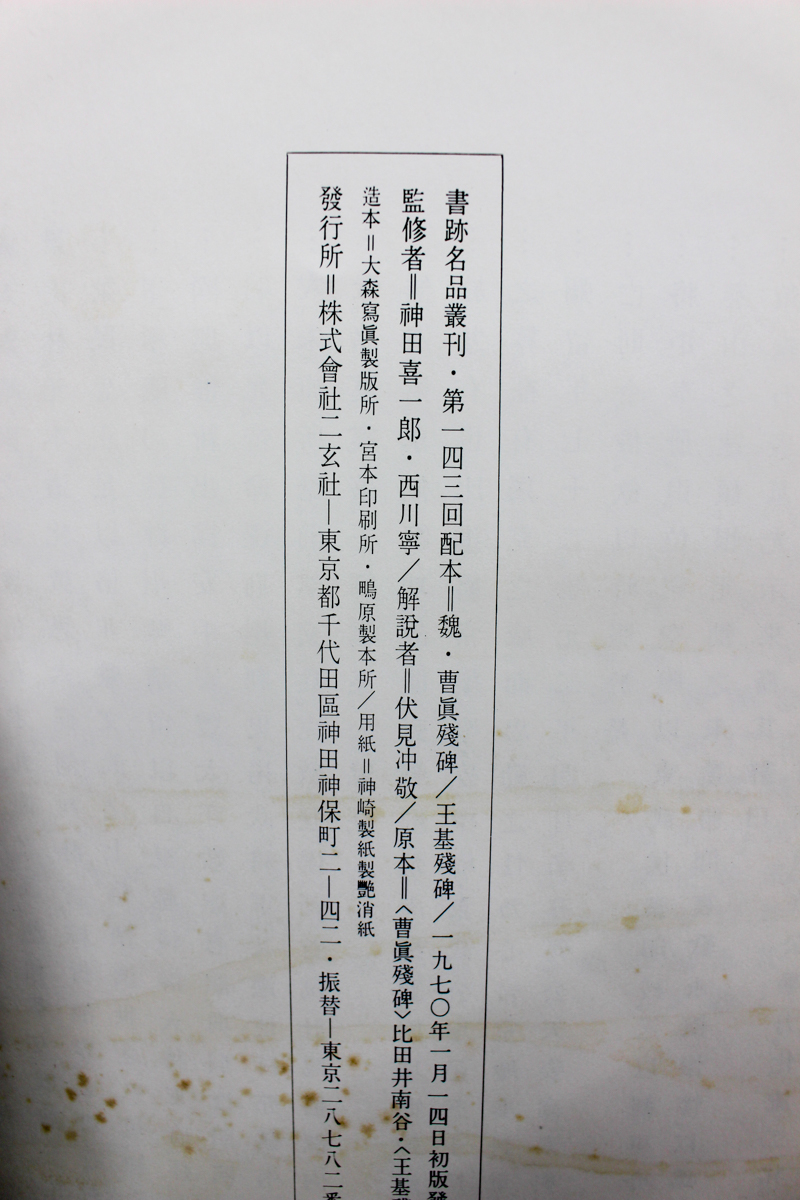 書跡名品叢刊・第一四三回配本＝魏・曹眞殘碑／王基殘碑／一九七〇年一月一四日初版發
監修者＝神田喜一郎・西川寧／解說者＝伏見冲敬／原本＝〈曹眞殘碑〉比田井南谷・〈王基
造本＝大森寫眞製版所・宮本印刷所・鴫原製本所／用紙＝神崎製紙製艷消紙
發行所＝株式會社二玄社―東京都千代田區神田神保町二―四二・振替―東京二八七八二番